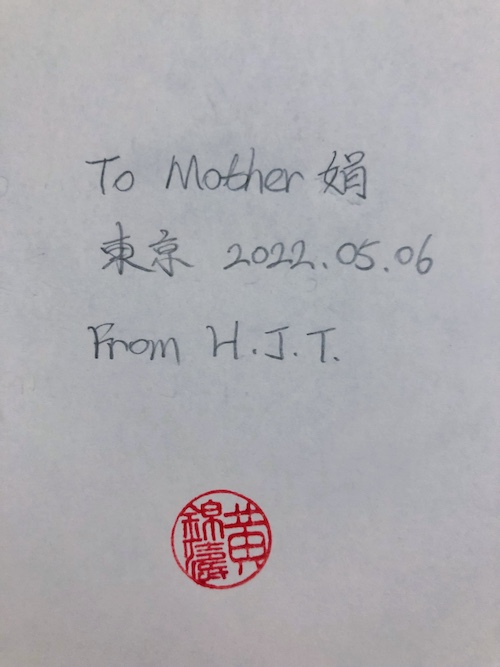 To Mother 娟
東京 2022.05.06
From H.J.T.
黄錦濤